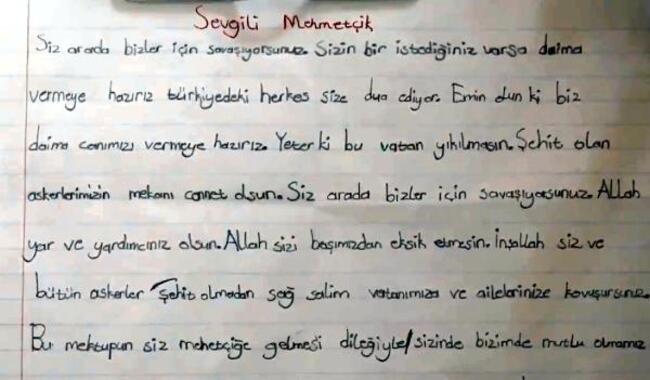 Sevgili Mehmetçik
Siz arada bizler için savaşıyorsunuz. Sizin bir istediğiniz varsa daima
vermeye hazırız türkiyedeki herkes size dua ediyor. Emin olun ki biz
daima canımızı vermeye hazırız. Yeter ki bu vatan yıkılmasın. Şehit olan
askerlerimizin mekanı cennet olsun. Siz arada bizler için savaşıyorsunuz. Allah
yar ve yardımcınız olsun. Allah sizi başımızdan eksik etmesin. İnşallah siz ve
bütün askerler şehit olmadan sağ salim vatanımıza ve ailelerinize kavuşursunuz.
Bu mektupun siz mehetçiğe gelmesi dileğiyle/sizinde bizimde mutlu olmamız